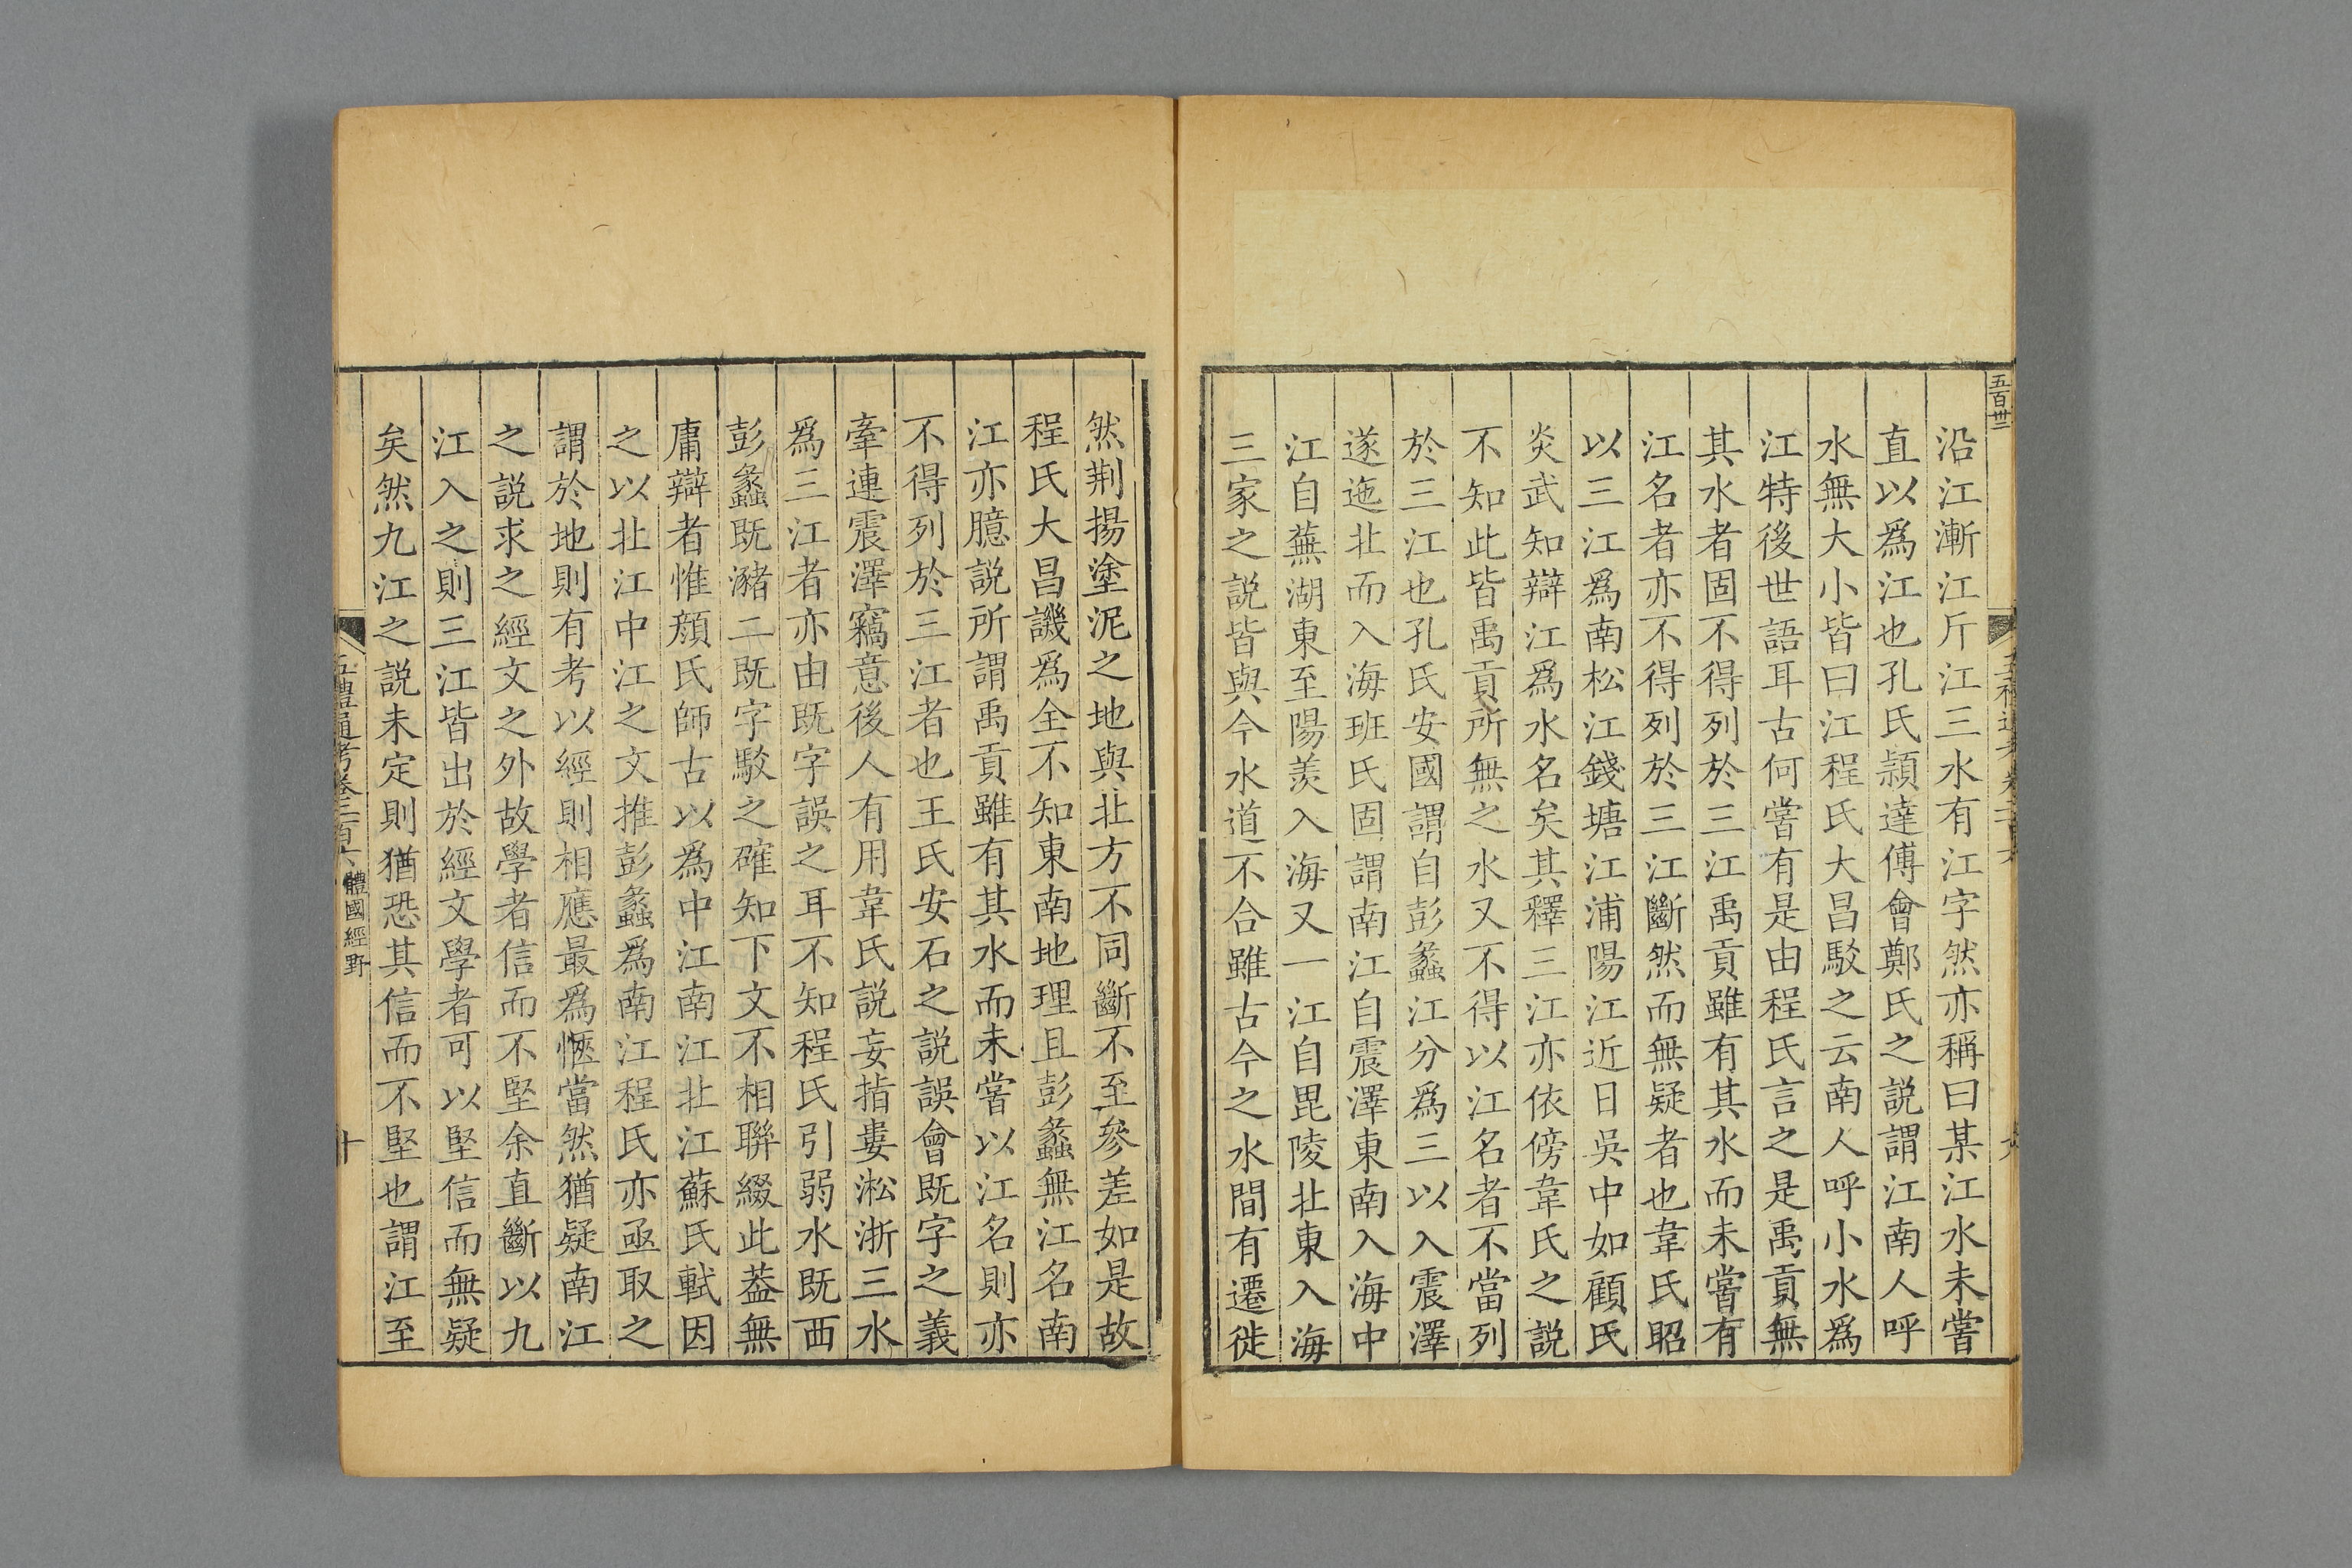 五百卅三
沿江漸江斤江三水有江字然亦稱曰某江水未嘗
直以爲江也孔氏頴達傅會鄭氏之説謂江南人呼
水無大小皆曰江程氏大昌駁之云南人呼小水爲
江特後世語耳古何嘗有是由程氏言之是禹貢無
其水者固不得列於三江禹貢雖有其水而未嘗有
江名者亦不得列於三江斷然而無疑者也韋氏昭
以三江爲南松江錢塘江浦陽江近日吳中如顧氏
炎武知辯江爲水名矣其釋三江亦依傍韋氏之説
不知此皆禹貢所無之水又不得以江名者不當列
於三江也孔氏安國謂自彭蠡江分爲三以入震澤
遂迤北而入海班氏固謂南江自震澤東南入海中
江自蕪湖東至陽羨入海又一江自毘陵北東入海
三家之説皆與今水道不合雖古今之水間有遷徙
然荆揚塗泥之地與北方不同斷不至參差如是故
程氏大昌譏爲全不知東南地理且彭蠡無江名南
江亦臆説所謂禹貢雖有其水而未嘗以江名則亦
不得列於三江者也王氏安石之説誤會既字之義
牽連震澤竊意後人有用韋氏説妄指婁淞浙三水
爲三江者亦由既字誤之耳不知程氏引弱水既西
彭蠡既瀦二既字駁之確知下文不相聯綴此葢無
庸辯者惟顔氏師古以爲中江南江北江蘇氏軾因
之以北江中江之文推彭蠡爲南江程氏亦亟取之
謂於地則有考以經則相應最爲愜當然猶疑南江
之説求之經文之外故學者信而不堅余直斷以九
江入之則三江皆出於經文學者可以堅信而無疑
矣然九江之説未定則猶恐其信而不堅也謂江至
五禮通考卷二百六 體國經野
十